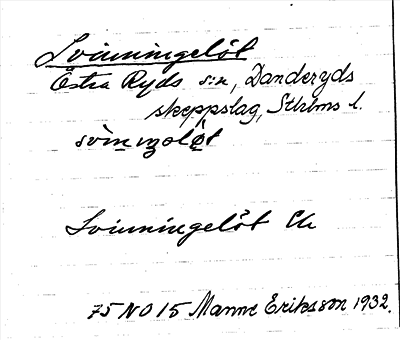 Svinningelöt
Östra Ryds s:n, Danderyds
skeppslag, Sthlms l.
Svinningelöt
75 NO 15 Manne Eriksson 1932.